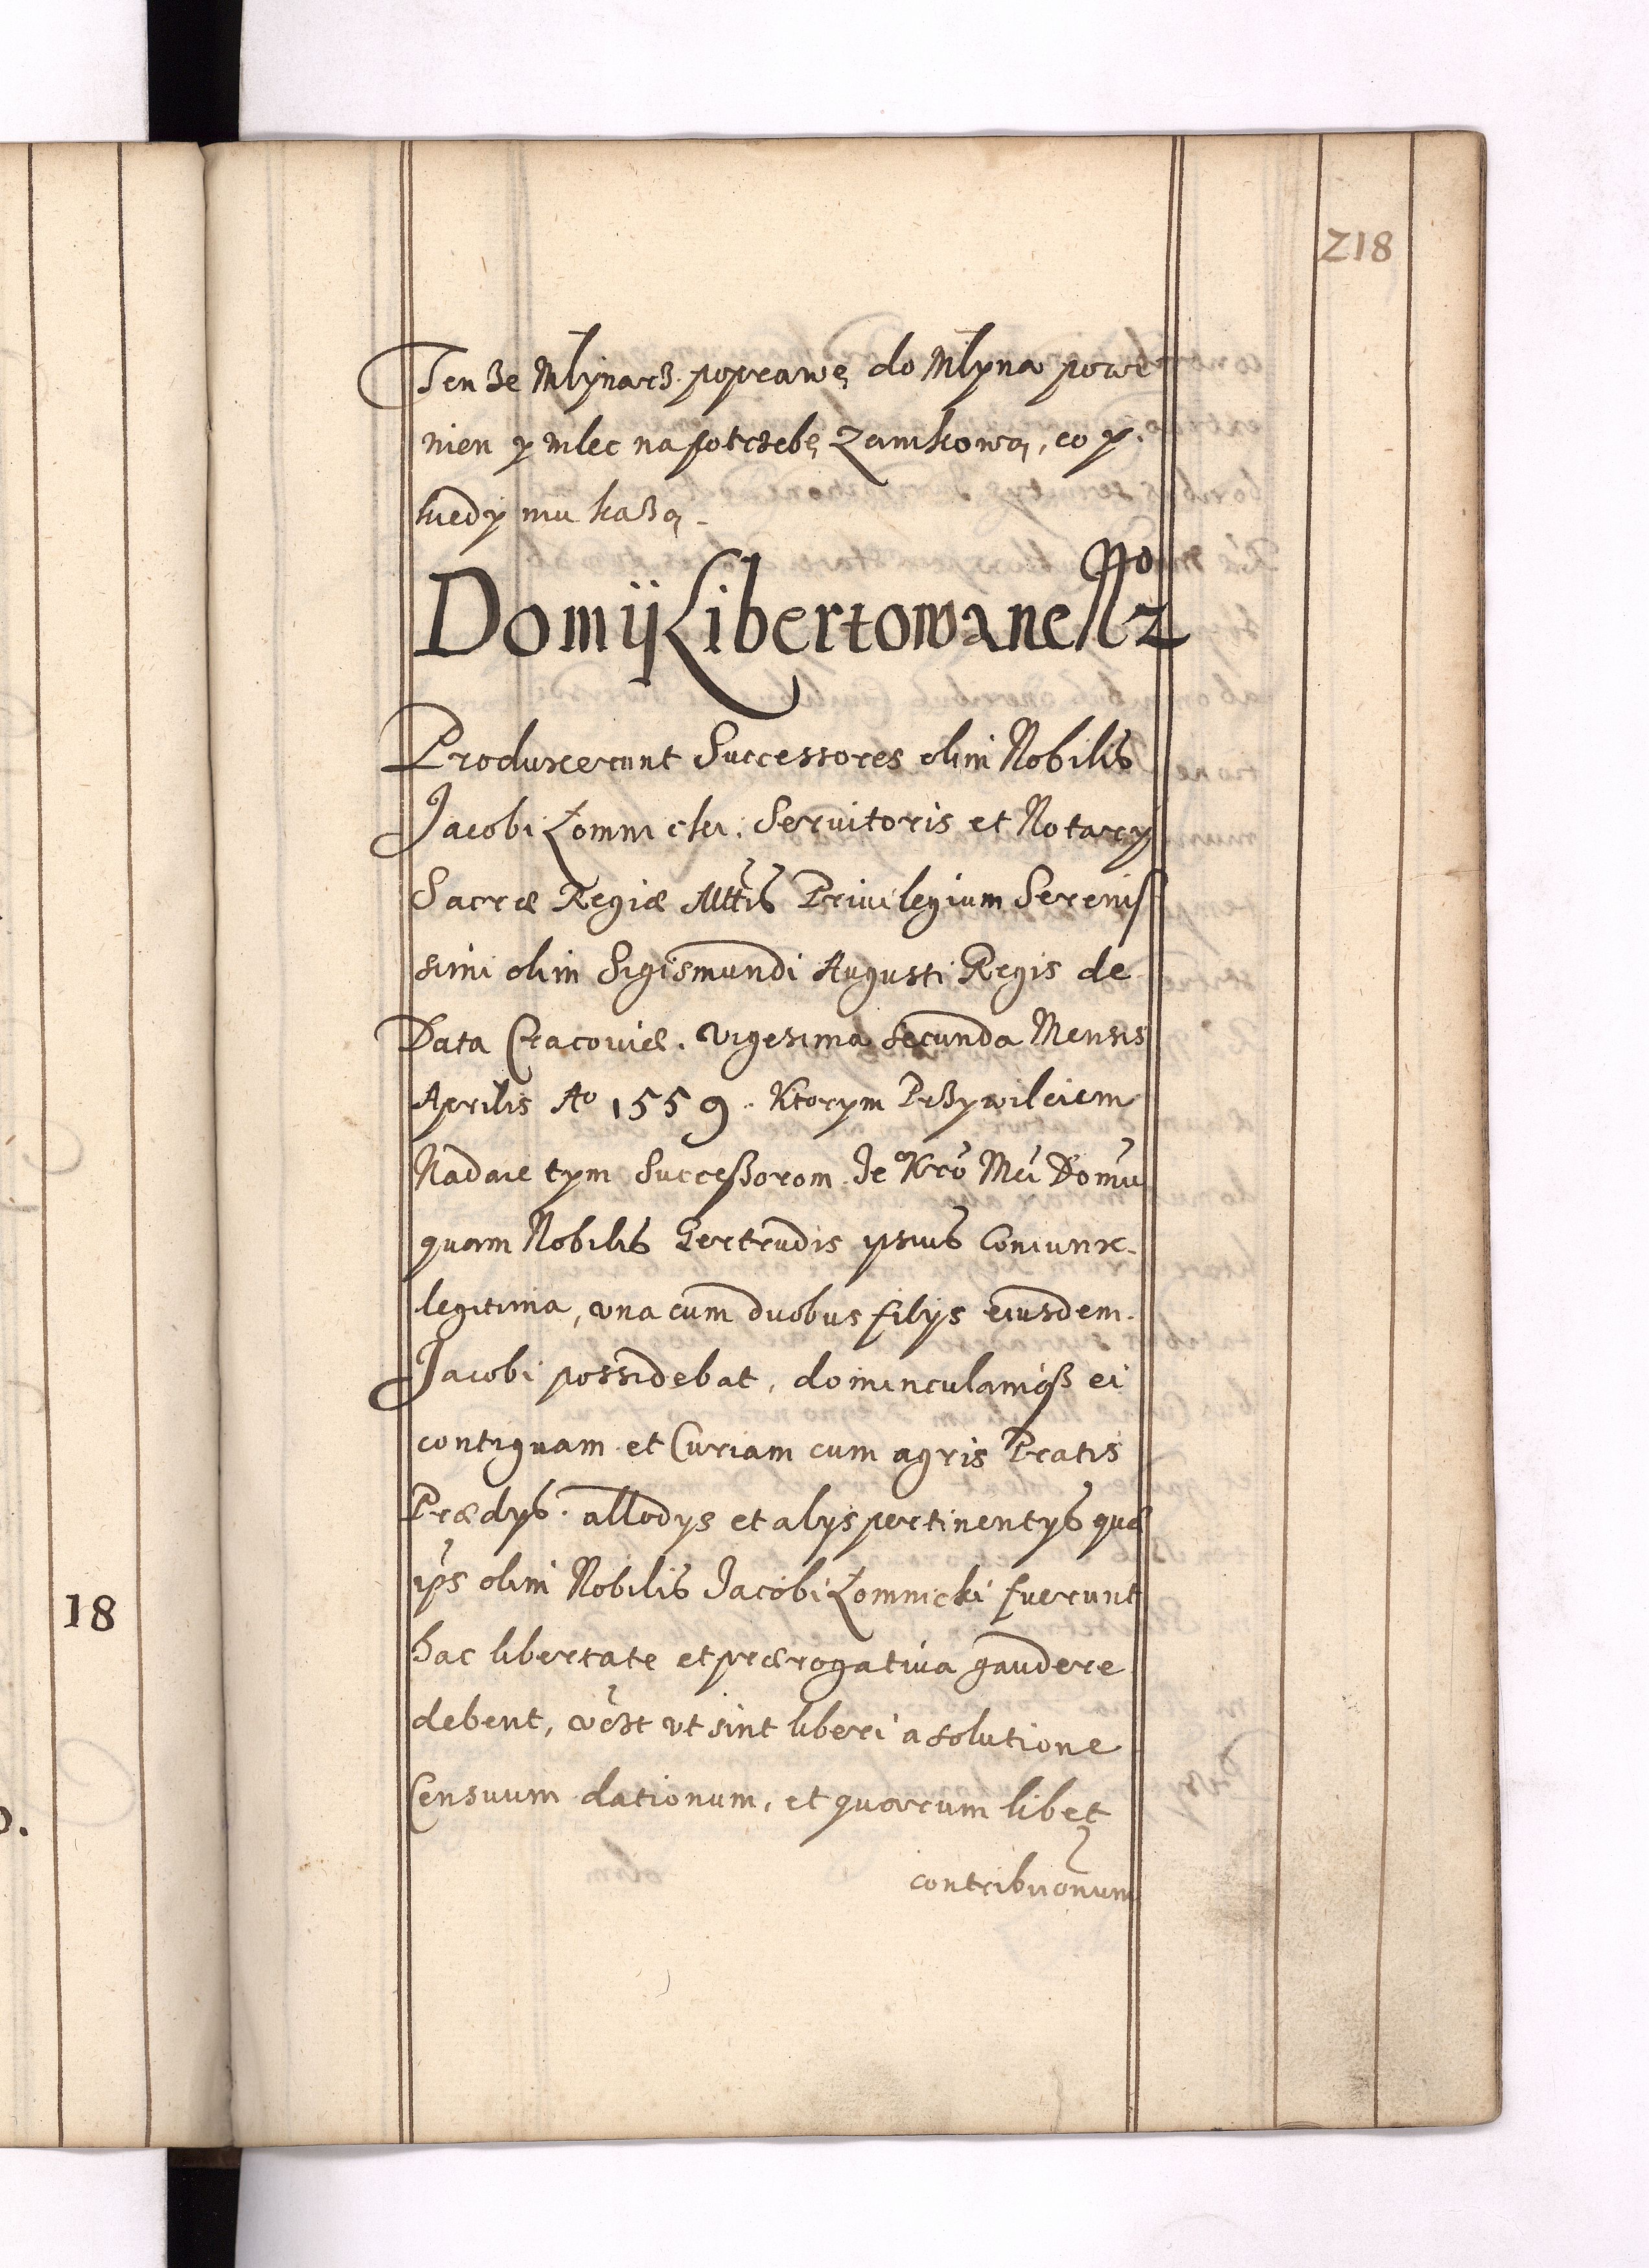 218
Ten że Młynarz poprawę do Młyna powi
nien y mlec na potrzebę Zamkową, co y
kiedy mu każą.
Domij Libertowane No 2
Produxerunt Successores olim Nobilis
Jacobi Łomnicki Servitoris et Notary
Sacræ Regiæ Mttis Privilegium Serenis
simi olim Sigismundi Augusti Regis de
Data Cracoviæ. vigesima secunda Mensis
Aprilis Ao 1559. Ktorym Przywileiem
Nadaie tym Successorom Je Kro Mci Domu
quam Nobilis Gertrudis ipsius Coniunx
legitima, una cum duobus filys eiusdem
Jacobi possidebat, domunculamqз ei
contiguam et Curiam cum agris Pratis
Prædys. allodys et alys pertinentys quæ
ips olim Nobilis Jacobi Łomnicki fuerunt
hac libertate et prærogativa gaudere
debent, ut sint liberi a solutione
Censuum dationum, et quorum libet
contribuonum
18